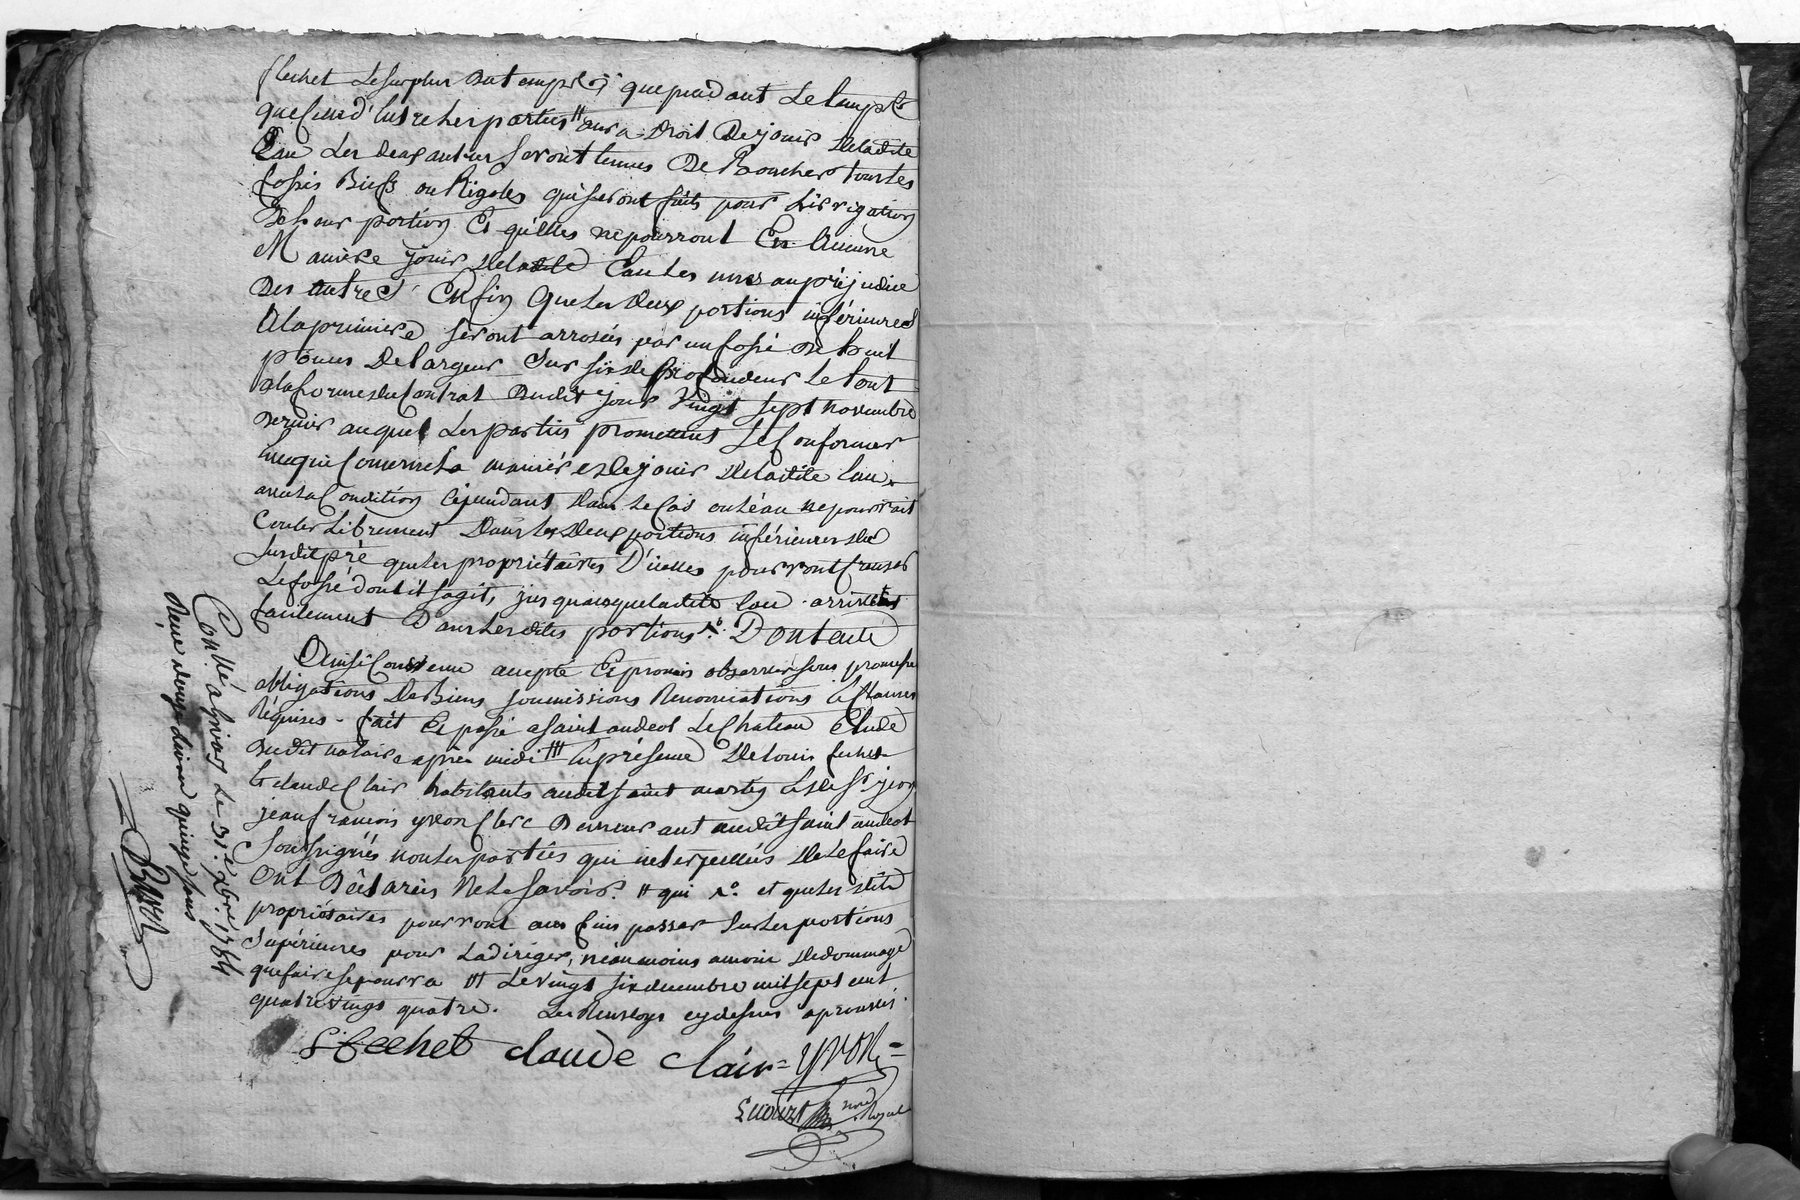 flechet Le surplus Du temps Et que pendant Le temps
que l'une d'entre Les parties # aura Droit De jouir De ladite
Eau Les deux autres seront tenues De Boucher tous les
fossés Biefs ou Rigoles qui seront faits pour L'irrigation
De Leur portion Et qu'elles ne pourront En Aucune
Manière jouir De ladite Eau Les unes au préjudice
Des autres Enfin que Les Deux portions inférieures
A la première seront arrosées par un fossé De huit
pouces De Largeur Sur six De profondeur Le tout
a la forme du Contrat Dudit jour Vingt sept novembre
Dernier auquel Les parties promettent se Conformer
En ce qui Concerne La manière De jouir De ladite Eau
avec La Condition Cependant Dans Le Cas ou L'eau ne pourroit
Couler Librement Dans Les Deux portions inférieures Du
susdit pré que Les propriétaires D'icelles pourront Creuser
Le fossé dont il s'agit, jusqu'a ce que ladite Eau arrive
facilement Dans Les dites portions /.° Dont acte
Ainsi Convenu accepté Et promis observer sous promesse
obligations De Biens soumissions Renonciations Et Clauses
Requises - fait Et passé a saint andeol Le Chateau Etude
Dudit notaire après midi ### En présence De Louis flechet
Et Claude Clair habitants audit saint martin Et De Sr.
jean francois yvon Clerc Demeurant audit saint andeol
Soussignés non Les parties qui interpellées De Le faire
Ont Déclarés Ne Le savoir. # qui /.° et que Les dits
propriétaires pourront aux fins passer sur Les portions
supérieures pour La diriger, néanmoins a moins De dommage
que faire se pourra ### Le vingt six decembre mil sept cent
quatre vingt quatre. Les Renvoys cy dessus approuvés.
flechet claude Clair = yvon =
nore Royal
Conllé a givors Le 31.e Xbre. 1784
Reçu douze livres quinze sous